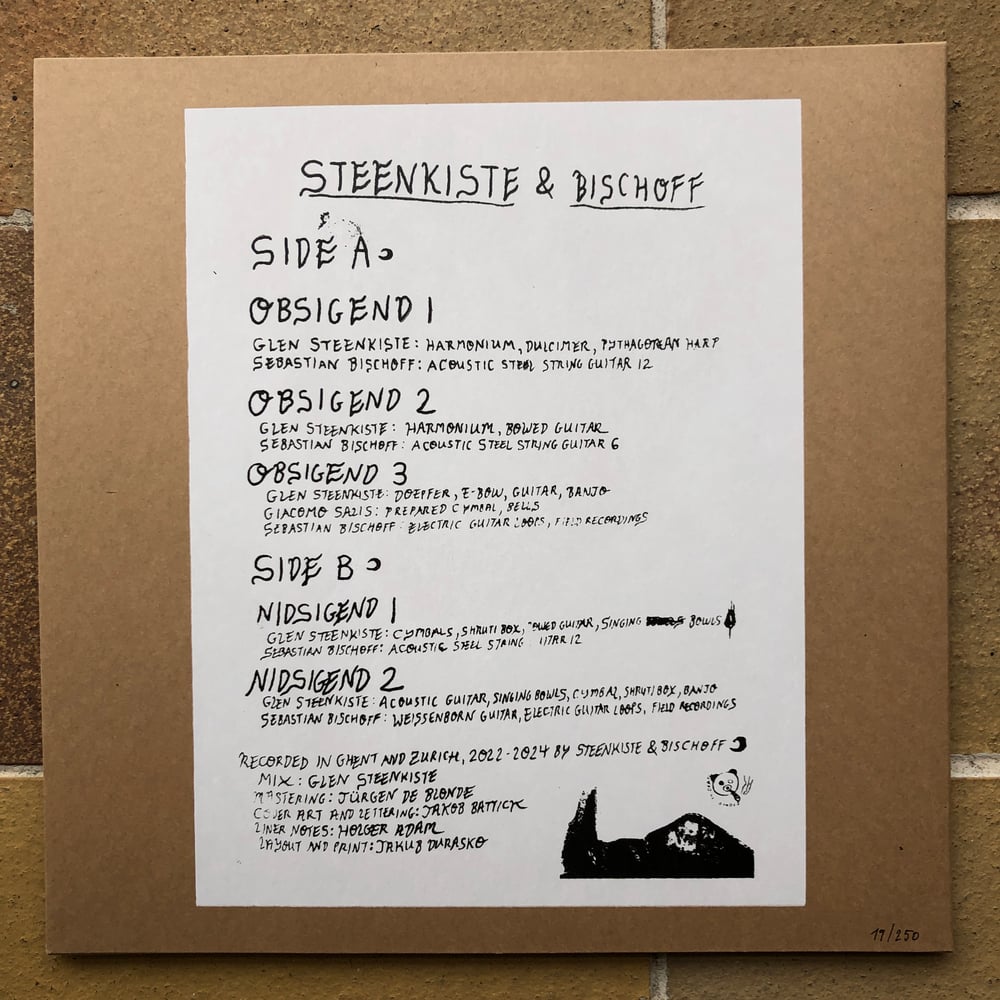 STEENKISTE & BISCHOFF
SIDE A
OBSIGEND 1
GLEN STEENKISTE: HARMONIUM, DULCIMER, PYTHAGOREAN HARP
SEBASTIAN BISCHOFF: ACOUSTIC STEEL STRING GUITAR 12
OBSIGEND 2
GLEN STEENKISTE: HARMONIUM, BOWED GUITAR
SEBASTIAN BISCHOFF: ACOUSTIC STEEL STRING GUITAR 6
OBSIGEND 3
GLEN STEENKISTE: DOEPFER, E-BOW, GUITAR, BANJO
GIACOMO SALIS: PREPARED CYMBAL, BELLS
SEBASTIAN BISCHOFF: ELECTRIC GUITAR LOOPS, FIELD RECORDINGS
SIDE B
NIDSIGEND 1
GLEN STEENKISTE: CYMBALS, SHRUTI BOX, BOWED GUITAR, SINGING BOWLS
SEBASTIAN BISCHOFF: ACOUSTIC STEEL STRING GUITAR 12
NIDSIGEND 2
GLEN STEENKISTE: ACOUSTIC GUITAR, SINGING BOWLS, CYMBAL, SHRUTI BOX, BANJO
SEBASTIAN BISCHOFF: WEISSENBORN GUITAR, ELECTRIC GUITAR LOOPS, FIELD RECORDINGS
RECORDED IN GHENT AND ZURICH, 2022-2024 BY STEENKISTE & BISCHOFF
MIX: GLEN STEENKISTE
MASTERING: JÜRGEN DE BLONDE
COVER ART AND LETTERING: JAKOB BATTICK
LINER NOTES: HOLGER ADAM
LAYOUT AND PRINT: JAKUB DURASKO
19/250